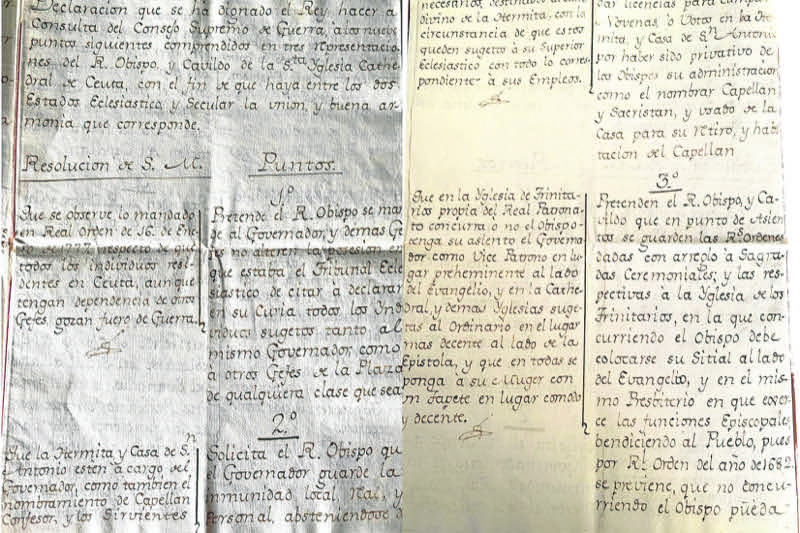 Declaracion que se ha dignado el Rey hacer à
Consulta del Consejo Supremo de Guerra, à los nueve
puntos siguientes comprendidos en tres representacio-
nes del R. Obispo, y Cavildo de la S.ta Iglesia Cathe-
dral de Ceuta, con el fin de que haya entre los dos
Estados Eclesiastico, y Secular la union, y buena ar-
monia que corresponde.
Resolucion de S. M.
Que se observe lo mandado
en Real Orden de 16. de Ene-
respecto de que
todos los individuos resi-
dentes en Ceuta, aunque
tengan dependencia de otros
Gefes, gozan fuero de Guerra.
Que la Hermita y Casa de S.n
Antonio esten à cargo del
Governador, como tambien el
nombramiento de Capellan
Confesor, y los Sirvientes
Puntos.
1º
Pretende el R. Obispo se man-
de al Governador, y demas Ge-
fes no alteren la posesion en
que estaba el Tribunal Ecle-
siastico de citar à declarar
en su Curia todos los Indi-
viduos sugetos tanto al
mismo Governador, como
à otros Gefes de la Plaza
de qualquiera clase que sea
2º
Solicita el R. Obispo que
el Governador guarde la
inmunidad local, Real, y
Personal, absteniendose d
necesarios, destinados al culto
divino de la Hermita, con la
circunstancia de que estos
queden sugetos à su Superior
Eclesiastico con todo lo corres-
pondiente à sus Empleos.
Que en la Yglesia de Trinita-
rios propia del Real Patrona-
to concurra o no el Obispo
tenga su asiento el Governa-
dor como Vice Patrono en lu-
gar preheminente al lado
del Evangelio, y en la Cathe-
dral, y demas Yglesias suge-
tas al Ordinario en el lugar
mas decente al lado de la
Epistola, y que en todas se
ponga à su Muger con
un tapete en lugar comodo
y decente.
dar licencias para cumplir
Novenas, o Votos en la He
mita, y Casa de S.n Antonio
por haber sido privativo de
los Obispos su administracion
como el nombrar Capellan
y Sacristan, y usado de la
Casa para su retiro, y habi
tacion del Capellan
3.º
Pretenden el R. Obispo, y Ca-
vildo que en punto de Asien-
tos se guarden las R.s Ordenes
dadas con arreglo à Sagra-
das Ceremoniales, y las res-
pectivas à la Yglesia de los
Trinitarios, en la que con-
curriendo el Obispo debe
colocarse su Sitial al lado
del Evangelio, y en el mis-
mo Presbiterio en que exer-
ce las funciones Episcopales
bendiciendo al Pueblo, pues
por R.l Orden del año de 1682.
se previene, que no concu-
rriendo el Obispo pueda